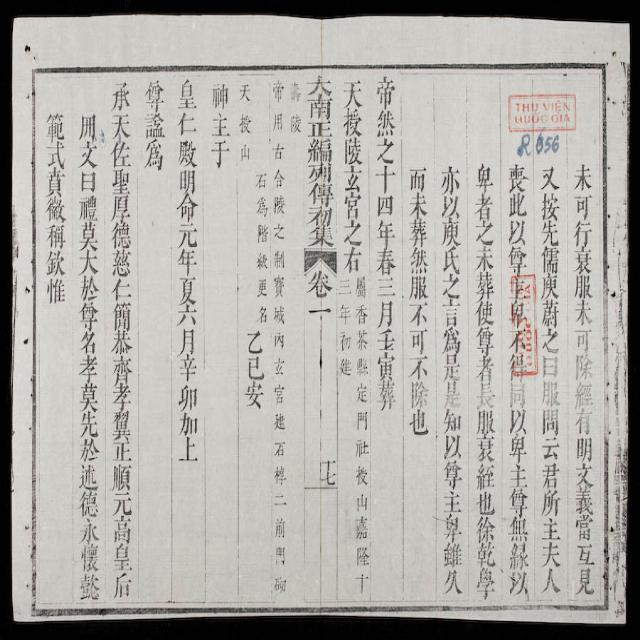 未可行衰服未可除經有明文義當互見
又按先儒庾蔚之曰服問云君所主夫人
喪此以尊主卑不得同以卑主尊無緣以
卑者之未葬使尊者長服衰絰也徐乾學
亦以庾氏之言爲是是知以尊主卑雖久
而未葬然服不可不除也
帝然之十四年春三月壬寅葬
天授陵玄宮之右屬香茶縣定門社授山嘉隆十
三年初建
大南正編列傳初集 卷一 十七
壽陵
帝用古合陵之制寶城內玄宮建石槨二前門砌
石爲階級更名
天授山
乙巳安
神主于
皇仁殿明命元年夏六月辛卯加上
尊諡爲
承天佐聖厚德慈仁簡恭齊孝翼正順元高皇后
冊文曰禮莫大於尊名孝莫先於述德永懷懿
範式賁徽稱欽惟
THƯ VIỆN
QUỐC GIA
R 656